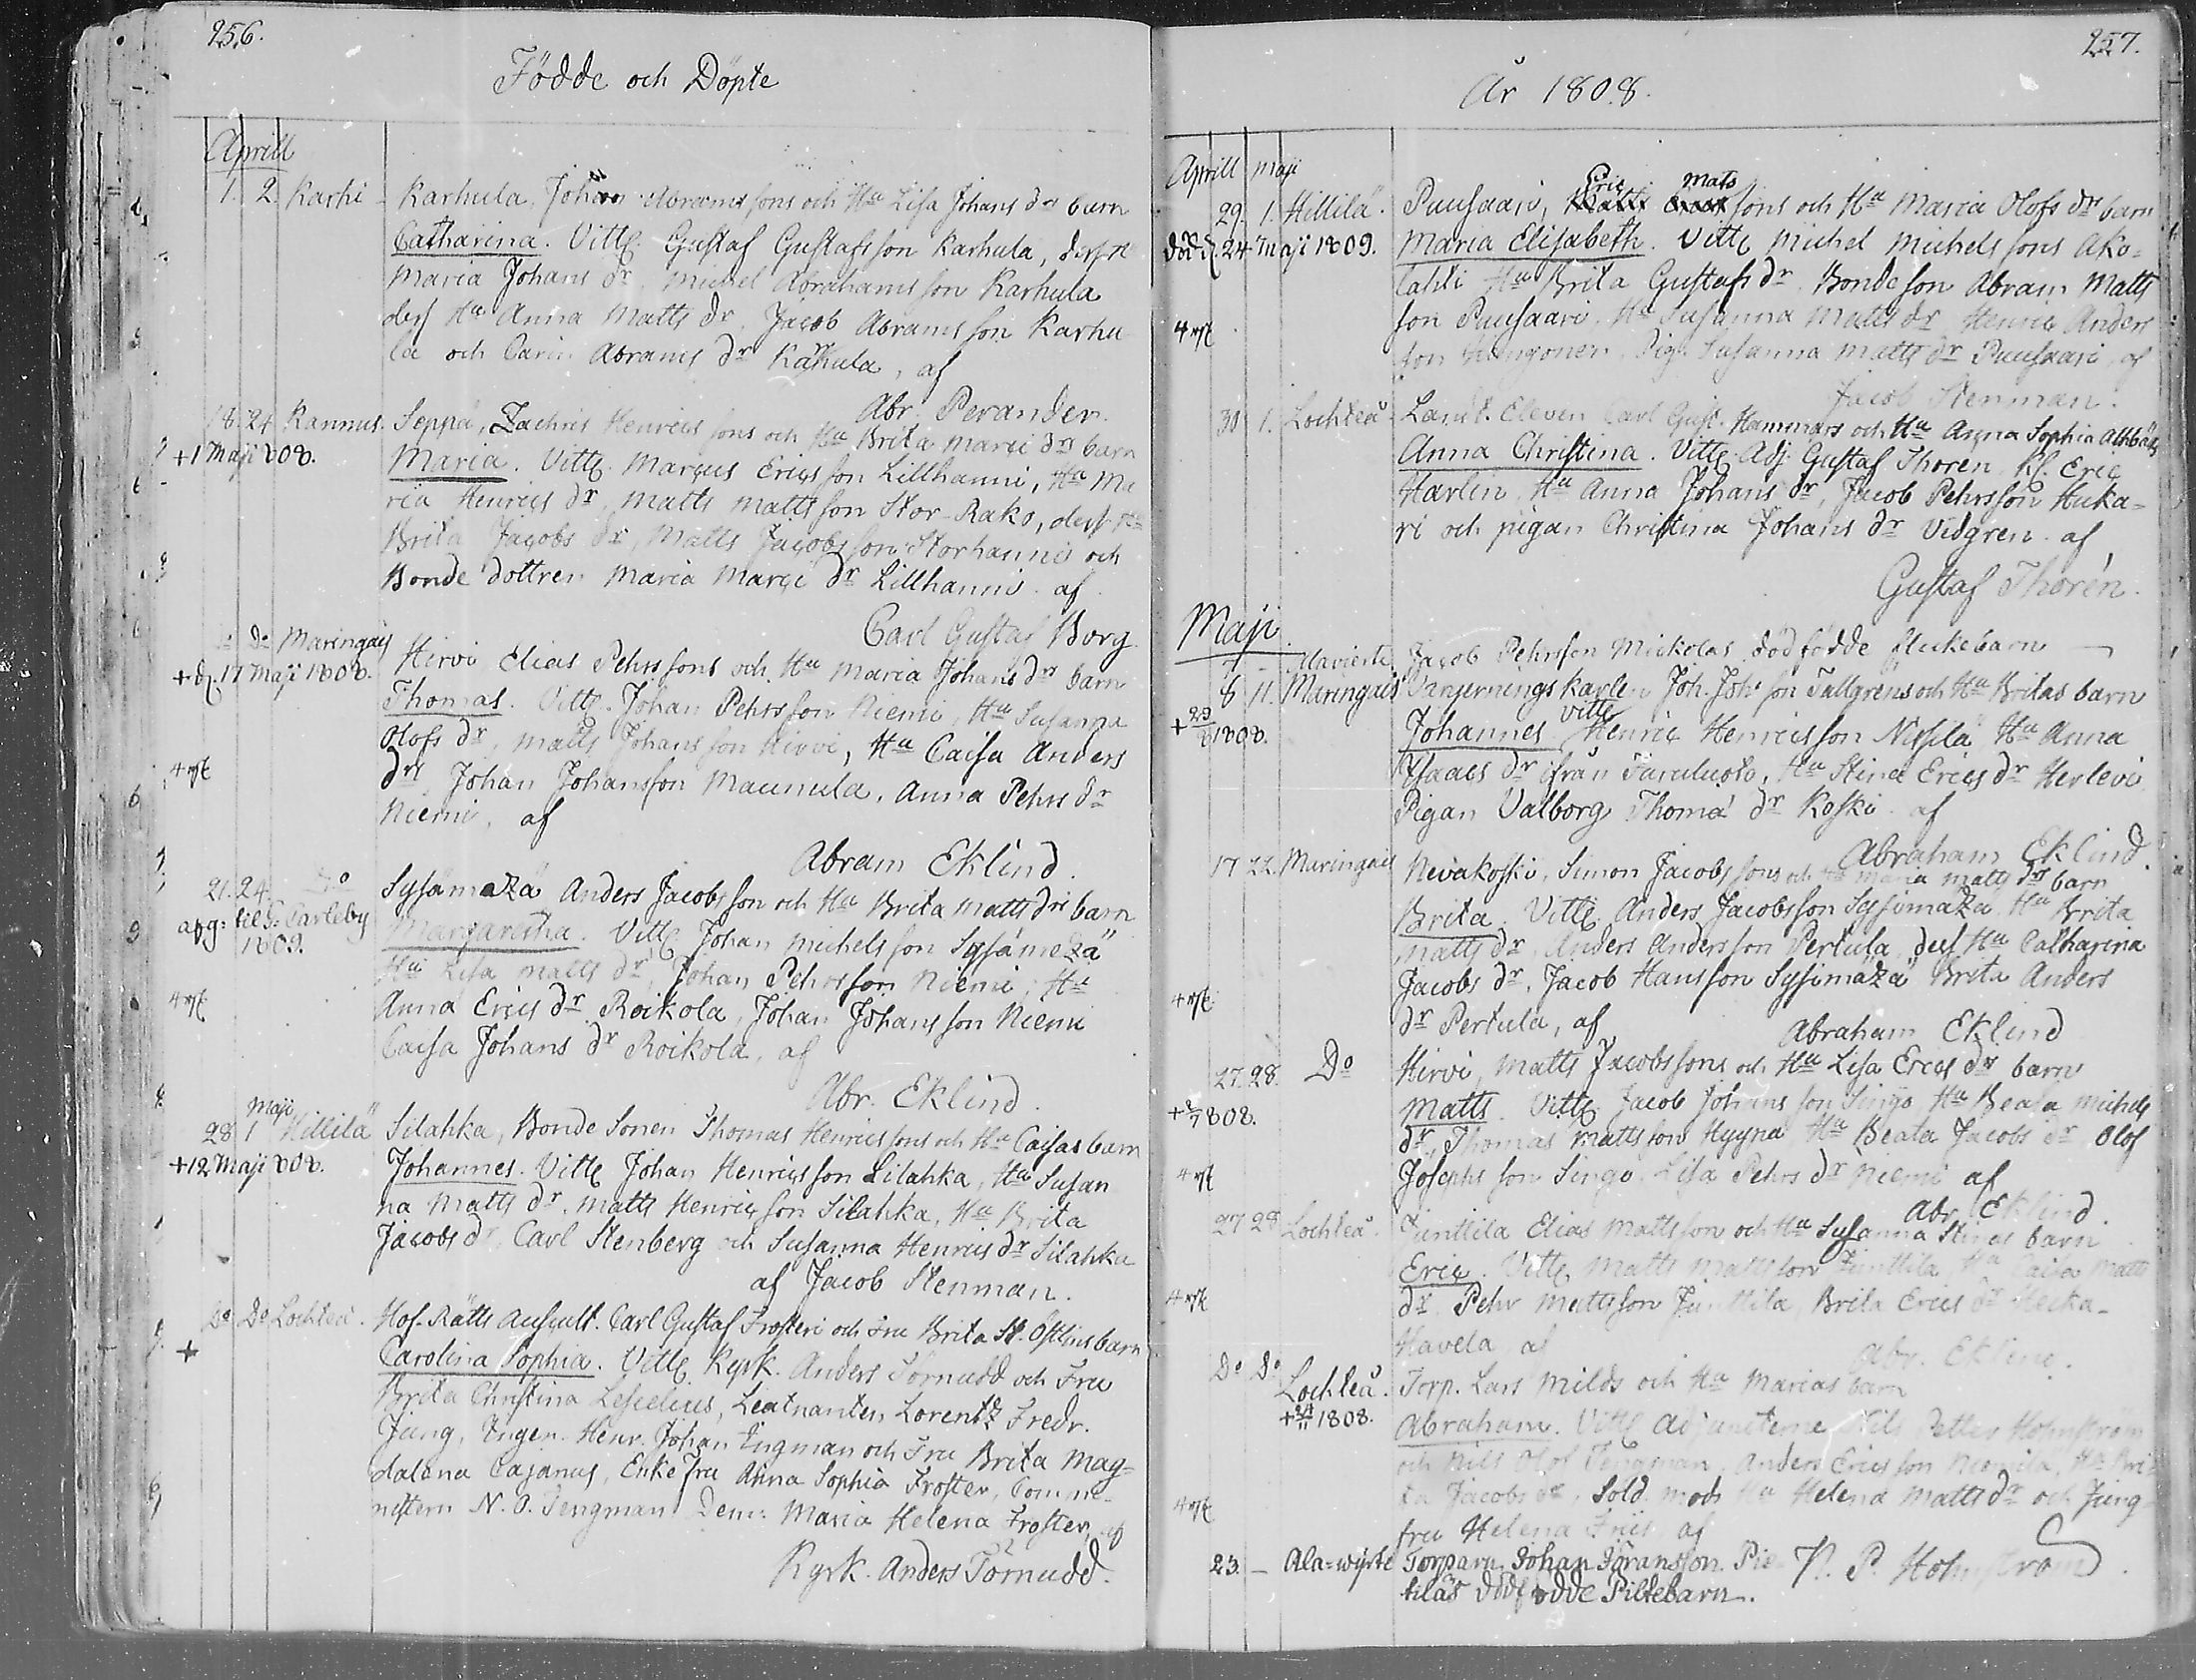 256.
Födde och Döpte
Aprill
1. 2. Karhi - Karhula, Johan Abrams sons och Hu Lisa Johans drs barn
Catharina. Vittē. Gustaf Gustafsson Karhula, dess H
Maria Johans dr. Michel Abrahamsson Karhula
dess Hu Anna Matts dr. Jacob Abramsson Karhu
la och Carin Abrams dr Karhula, af
Abr. Perander.
18. 24 Kannus. Seppä, Zachris Henrics sons och Hu Brita Marci drs barn
+1 Maji 808.
Maria. Vittē. Marcus Ericsson Lillhanni, Hu Ma
ria Henrics dr, Matts Mattsson Stor-Rako, dess Hu
Brita Jacobs dr, Matts Jacobsson Storhanni och
Bonde dottren Maria Marci dr Lillhanni. af
Carl Gustaf Borg
Do Maringais Hirvi Elias Pehrs sons och Hu Maria Johans drs barn
+d. 17 Maji 1808.
Thomas. Vittē. Johan Pehrsson Niemi, Hu Susanna
Olofs dr, Matts Johansson Hirvi, Hu Caisa Anders
dr, Johan Johansson Maunula, Anna Pehrs dr
Niemi, af
Abram Eklind.
21. 24. Do Sysämäzä Anders Jacobsson och Hu Brita Matts drs barn
afg: til G: Carleby
1809.
Margaretha. Vittē Johan Michelsson Sysämezä
Hu Lisa Matts dr, Johan Pehrsson Niemi, Hu
Anna Erics dr Roikola, Johan Johansson Niemi
Caisa Johans dr Roikola, af
Abr. Eklind.
Maji
28. 1 Hillilä Silahka, Bonde Sonen Thomas Henrics sons och Hu Caisas barn
+12 Maji 808.
Johannes. Vittē Johan Henricsson Silahka, Hu Susan
na Matts dr. Matts Henricsson Silahka, Hu Brita
Jacobs dr, Carl Stenberg och Susanna Henrics dr Silahka
af Jacob Stenman.
Do Do Lochteå. Hof-Rätts Auscult. Carl Gustaf Frosteri och Fru Brita St. Östlins barn
+
Carolina Sophia. Vittē. Kyrk. Anders Törnudd och Fru
Brita Christina Lescelius, Leutnanten Lorentz Fredr.
Jung, Ingen. Henr. Johan Ingman och Fru Brita Mag-
dalena Cajanus, Enke Fru Anna Sophia Froster, Commi-
nistern N. O. Tengman Dem: Maria Helena Froster, af
Kyrk. Anders Törnudd.
257.
År 1808.
Aprill Maji
29. 1. Hillilä. Puusaari, Eric Mats sons och Hu Maria Olofs drs barn
död d. 24 Maji 1809.
Maria Elisabeth. Vittē Michel Michelssons Ako-
lahti Hu Brita Gustafs dr. Bondeson Abram Matts
son Puusaari. Hu Susanna Matts dr Henric Anders
son Pig: Susanna Matts dr Puusaari, af
Jacob Stenman.
30 1. Lochteå. Landt. Eleven Carl Gust. Hammars och Hu Anna Sophia
Anna Christina. Vittē. Adj: Gustaf Thoren, Kl. Eric
Harlin, Hu Anna Johans dr, Jacob Pehrsson Huka-
ri och pigan Christina Johans dr Vidgren. af
Gustaf Thorén.
Maji
7 - Alavieska Jacob Pehrsson Mickolas död födde flickebarn
8 11. Maringais Vanjernings karlen Joh. Johsson Tallgrens och Hu Britas barn
+ 29/8 1808.
Johannes. Vittē Henric Henricsson Nissilä Hu Anna
Isaacs dr ifrån, Hu Stina Erics dr Herlevi
Pigan Valborg Thomæ dr Koski. af
Abraham Eklind.
17 22. Maringais Nevakoski, Simon Jacobs sons och Hu Maria Matts drs barn
Brita. Vittē. Anders Jacobsson Sysimäzä Hu Brita
Matts dr, Anders Andersson Pertula, dess Hu Catharina
Jacobs dr, Jacob Hansson Sysimäzä Brita Anders
dr Pertula, af
Abraham Eklind
27. 28. Do Hirvi, Matts Jacobs sons och Hu Lisa Erics drs barn
+ 8/7 808.
Matts. Vittē Jacob Johansson Singo Hu Beata Michels
dr, Thomas Mattsson Hyyna Hu Beata Jacobs dr Olof
Josephsson Singo, Lisa Pehrs dr Niemi af
Abr. Eklind.
27 28 Lochteå. Junttila Elias Mattsson och Hu Susanna Stinas barn
Eric. Vittē. Matts Mattsson Junttila Hu Caisa Matts
dr. Pehr Mattsson Junttila, Brita Erics dr Hecka-
Havela af
Abr. Eklind.
Do Do Lochteå. Torp. Lars Milds och Hu Marias barn
+ 24/11 1808.
Abraham. Vittē Adjuncterne Nils Petter Holmström
och Nils Olof Tengman, Anders Ericsson, Hu Bri
ta Jacobs dr, Sold. Hu Helena Matts dr och Jung-
fru Helena Friis af
N. P. Holmström
23. - Ala-wijrte Torparn Johan Göransson Pie
tiläs dödfödde Piltebarn.